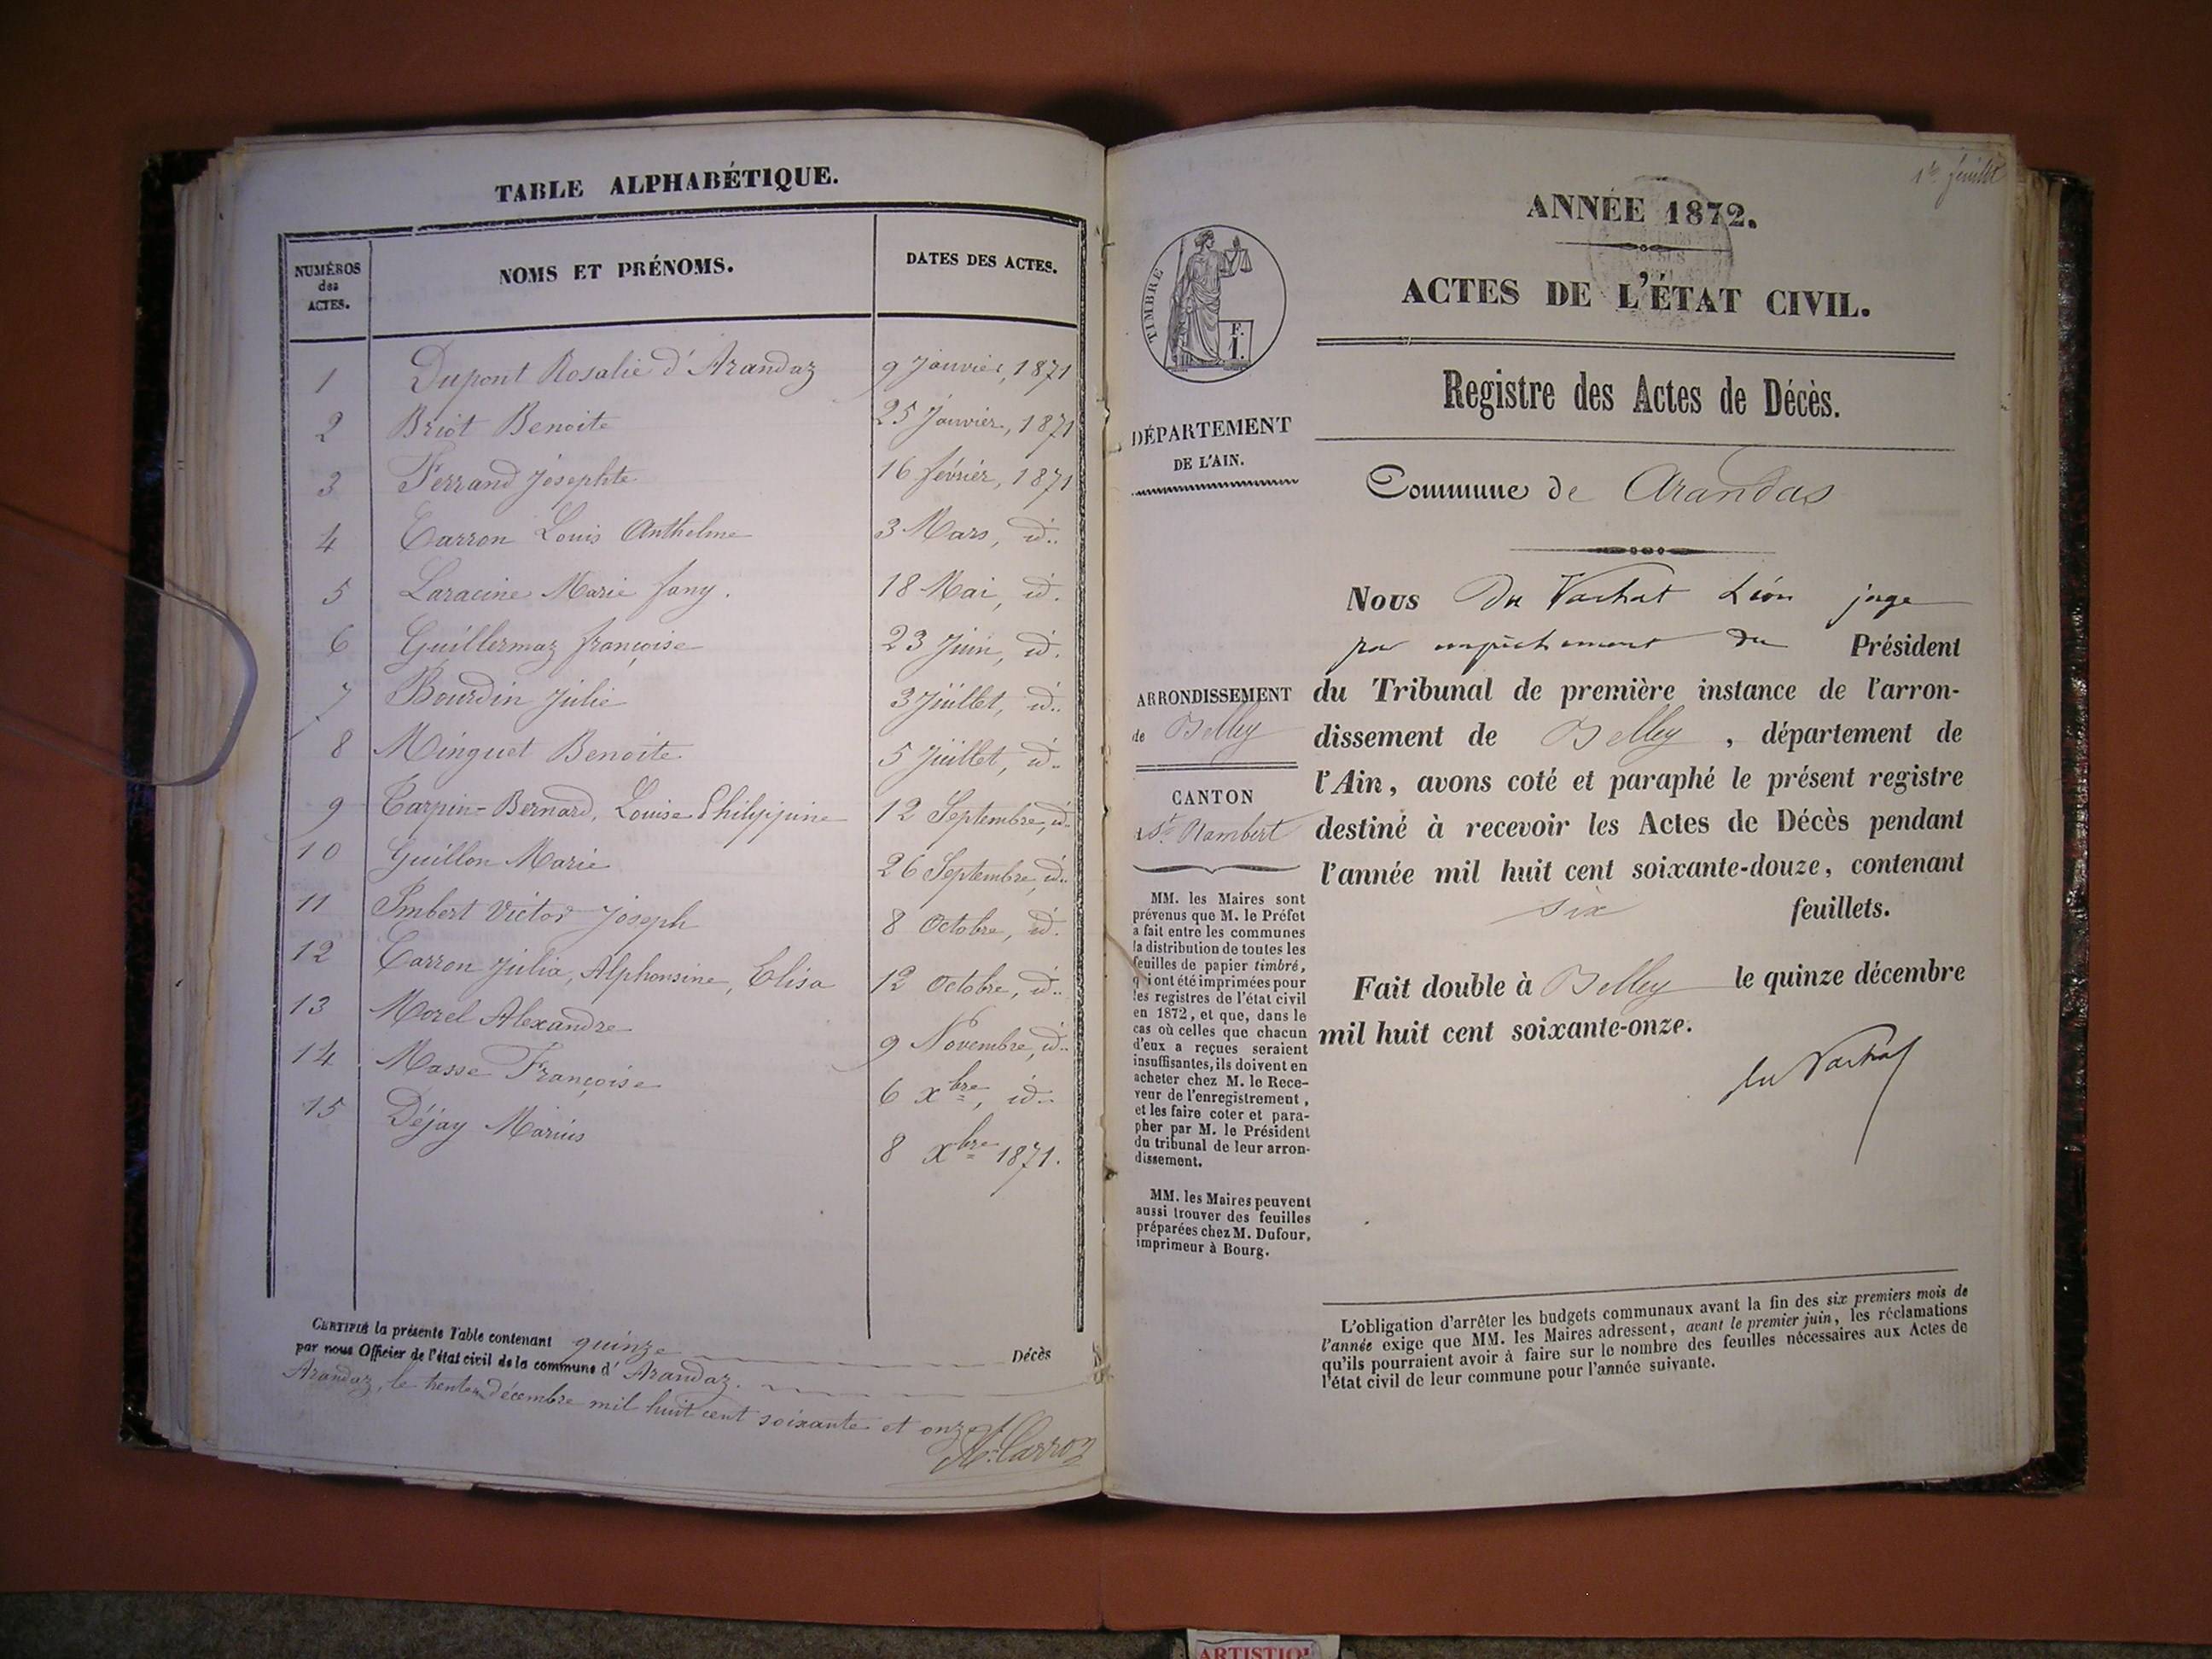 TABLE ALPHABÉTIQUE.
NUMÉROS des ACTES. NOMS ET PRÉNOMS. DATES DES ACTES.
1 Dupont Rosalie d'Arandaz 9 Janvier, 1871
2 Briot Benoite 25 Janvier, 1871
3 Ferrand Josephte 16 février, 1871
4 Carron Louis Anthelme 3 Mars, id..
5 Laracine Marie fany. 18 Mai, id.
6 Guillermaz françoise 23 Juin, id.
7 Bourdin Julie 3 Juillet, id..
8 Minguet Benoite 5 Juillet, id..
9 Carpin-Bernard, Louise Philippine 12 Septembre, id..
10 Guillon Marie 26 Septembre, id..
11 Imbert Victor Joseph 8 Octobre, id.
12 Carron Julia, Alphonsine, Elisa 12 Octobre, id..
13 Morel Alexandre 9 Novembre, id..
14 Masse Françoise 6 xbre, id..
15 Déjay Marius 8 xbre 1871.
CERTIFIÉ la présente Table contenant quinze Décès
par nous Officier de l'état civil de la commune d' Arandaz.
Arandaz, le trente décembre mil huit cent soixante et onze
Carron
1er feuillet
ANNÉE 1872.
ACTES DE L'ÉTAT CIVIL.
Registre des Actes de Décès.
Commune de Arandas
TIMBRE
F.
1.
DÉPARTEMENT
DE L'AIN.
ARRONDISSEMENT
de Belley
CANTON
St Rambert
MM. les Maires sont
prévenus que M. le Préfet
a fait entre les communes
la distribution de toutes les
feuilles de papier timbré,
qui ont été imprimées pour
les registres de l'état civil
en 1872, et que, dans le
cas où celles que chacun
d'eux a reçues seraient
insuffisantes, ils doivent en
acheter chez M. le Rece-
veur de l'enregistrement,
et les faire coter et para-
pher par M. le Président
du tribunal de leur arron-
dissement.
MM. les Maires peuvent
aussi trouver des feuilles
préparées chez M. Dufour,
imprimeur à Bourg.
Nous Du Vachat Léon juge
par empêchement du Président
du Tribunal de première instance de l'arron-
dissement de Belley, département de
l'Ain, avons coté et paraphé le présent registre
destiné à recevoir les Actes de Décès pendant
l'année mil huit cent soixante-douze, contenant
six feuillets.
Fait double à Belley le quinze décembre
mil huit cent soixante-onze.
du Vachat
L'obligation d'arrêter les budgets communaux avant la fin des six premiers mois de
l'année exige que MM. les Maires adressent, avant le premier juin, les réclamations
qu'ils pourraient avoir à faire sur le nombre des feuilles nécessaires aux Actes de
l'état civil de leur commune pour l'année suivante.